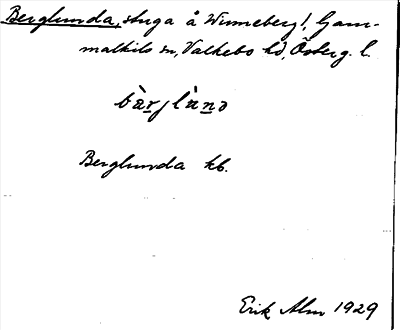 Berglunda, stuga å Winneberg!, Gam-
malkils sn, Valkebo hd, Österg. l.
Berglunda kb.
Erik Alm 1929